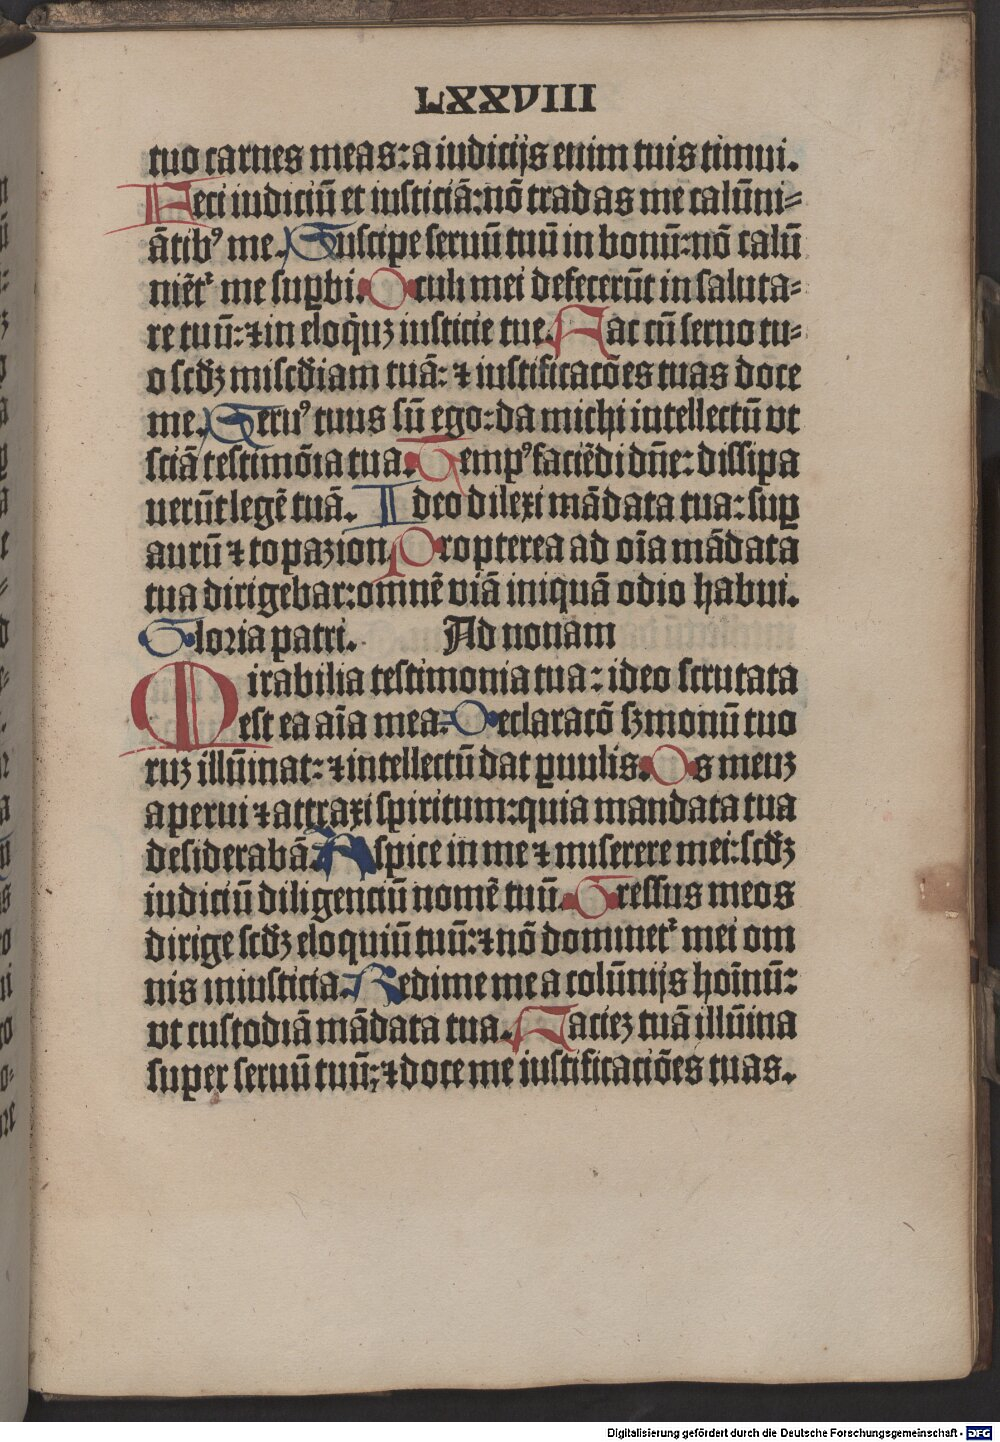 LXXVIII
tuo carnes meas: a iudicijs enim tuis timui.
Feci iudiciū et iusticiā: nō tradas me calūni⸗
ātibꝰ me. Suscipe seruū tuū in bonū: nō calū
niēt᷑ me suꝑbi. Oculi mei defecerūt in saluta⸗
re tuū: ⁊ in eloq̄uꝫ iusticie tue. Fac cū seruo tu⸗
o scd̄ꝫ miscd̄iam tuā: ⁊ iustificatōes tuas doce
me. Seruꝰ tuus sū ego: da michi intellectū vt
sciā testimōia tua. Tempꝰ faciēdi dn̄e: dissipa
uerūt legē tuā. Ideo dilexi mādata tua: suꝑ
aurū ⁊ topazion. Propterea ad oīa mādata
tua dirigebar: omnē viā iniquā odio habui.
Gloria patri. Ad nonam
Mirabilia testimonia tua: ideo scrutata
est ea aīa mea. Declaratō ẜmonū tuo
ruꝫ illūinat: ⁊ intellectū dat ꝑuulis. Os meuꝫ
aperui ⁊ attraxi spiritum: quia mandata tua
desiderabā. Aspice in me ⁊ miserere mei: scd̄ꝫ
iudiciū diligenciū nomē tuū. Gressus meos
dirige scd̄ꝫ eloquiū tuū: ⁊ nō dominet᷑ mei om
nis iniusticia. Redime me a colūnijs hoīnū:
vt custodiā mādata tua. Facieꝫ tuā illūina
super seruū tuū: ⁊ doce me iustificaciōes tuas.
Digitalisierung gefördert durch die Deutsche Forschungsgemeinschaft - DFG